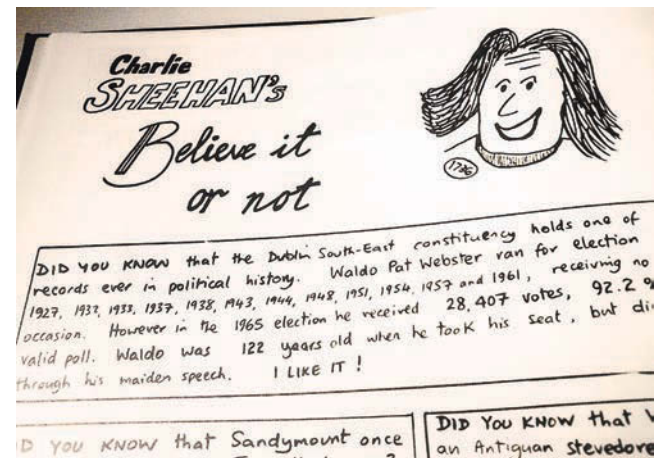 Charlie
SHEEHAN'S
Believe it
or not
1736
DID YOU KNOW that the Dublin South-East constituency holds one of
records ever in political history. Waldo Pat Webster ran for election
1927, 1932, 1933, 1937, 1938, 1943, 1944, 1948, 1951, 1954, 1957 and 1961, receiving no
occasion. However in the 1965 election he received 28,407 votes, 92.2%
valid poll. Waldo was 122 years old when he took his seat, but
through his maiden speech. I LIKE IT!
YOU KNOW that Sandymount once
DID YOU KNOW that
an Antiguan stevedore